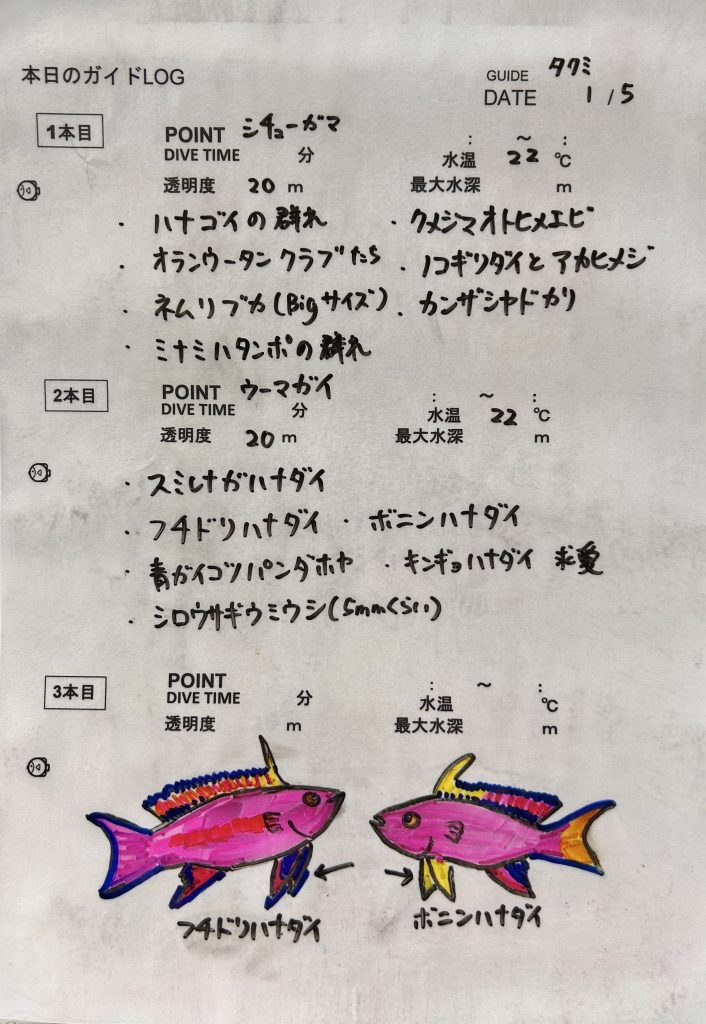 本日のガイドLOG
GUIDE タクミ
DATE 1/5
1本目
POINT シチューガマ
DIVE TIME 分 : ~ :
水温 22 ℃
透明度 20 m 最大水深 m
・ハナゴイの群れ ・クメジマオトヒメエビ
・オランウータンクラブたち ・ノコギリダイとアカヒメジ
・ネムリブカ(Bigサイズ) ・カンザシヤドカリ
・ミナミハタンポの群れ
2本目
POINT ウーマガイ
DIVE TIME 分 : ~ :
水温 22 ℃
透明度 20 m 最大水深 m
・スミレナガハナダイ
・フチドリハナダイ ・ボニンハナダイ
・青ガイコツパンダホヤ ・キンギョハナダイ 求愛
・シロウサギウミウシ(5mmくらい)
3本目
POINT
DIVE TIME 分 : ~ :
水温 ℃
透明度 m 最大水深 m
フチドリハナダイ ボニンハナダイ